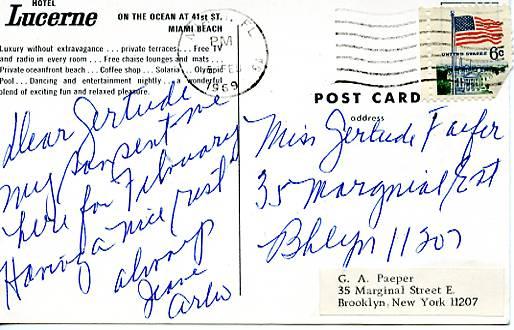 HOTEL
Lucerne
ON THE OCEAN AT 41st ST.
MIAMI BEACH
Luxury without extravagance . . . private terraces . . . Free TV
and radio in every room . . . Free chaise lounges and mats . . .
Private oceanfront beach . . Coffee shop . . Solaria . . Olympic
Pool . . . Dancing and entertainment nightly . . a wonderful
blend of exciting fun and relaxed pleasure.
FL
PM
FEB
1969
UNITED STATES
6c
POST CARD
address
Dear Gertrude
My Son sent me
here for February
Having a nice rest
always
Miss Gertude
35 Marginal Est
Bklyn 11207
G. A. Paeper
35 Marginal Street E.
Brooklyn, New York 11207